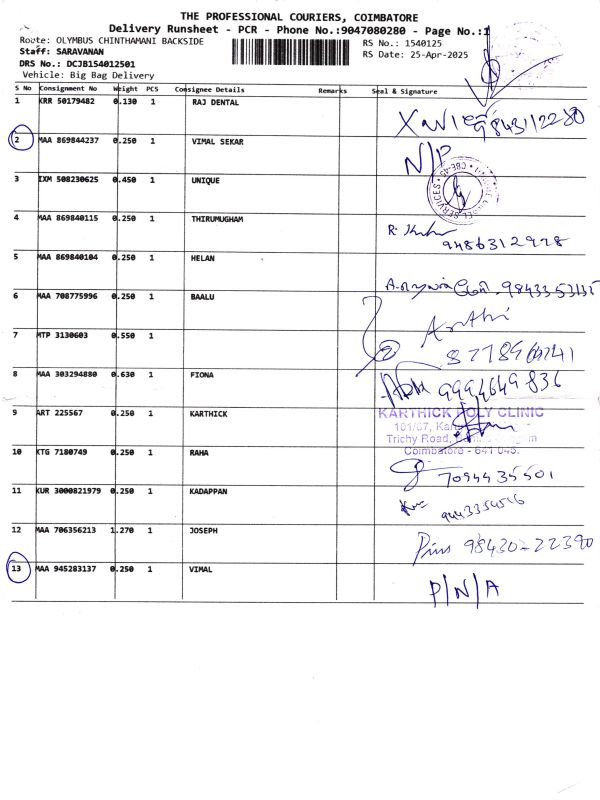 THE PROFESSIONAL COURIERS, COIMBATORE
Delivery Runsheet - PCR - Phone No.:9047080280 - Page No.:1
Route: OLYMBUS CHINTHAMANI BACKSIDE RS No.: 1540125
Staff: SARAVANAN RS Date: 25-Apr-2025
DRS No.: DCJB154012501
Vehicle: Big Bag Delivery
S No Consignment No Weight PCS Consignee Details Remarks Seal & Signature
1 KRR 50179482 0.130 1 RAJ DENTAL 9843112280
2 MAA 869844237 0.250 1 VIMAL SEKAR N/P
3 IXM 508230625 0.450 1 UNIQUE
4 MAA 869840115 0.250 1 THIRUMUGHAM 9486312978
5 MAA 869840104 0.250 1 HELAN
6 MAA 708775996 0.250 1 BAALU Arthi
7 MTP 3130603 0.550 1 2
8 MAA 303294880 0.630 1 FIONA 9994649836
9 ART 225567 0.250 1 KARTHICK KARTHICK POLY CLINIC
Trichy Road,
Coimbatore - 641 045.
10 KTG 7180749 0.250 1 RAHA 7094435501
11 KUR 3000821979 0.250 1 KADAPPAN
12 MAA 706356213 1.270 1 JOSEPH 98430-22390
13 MAA 945283137 0.250 1 VIMAL P/N/A